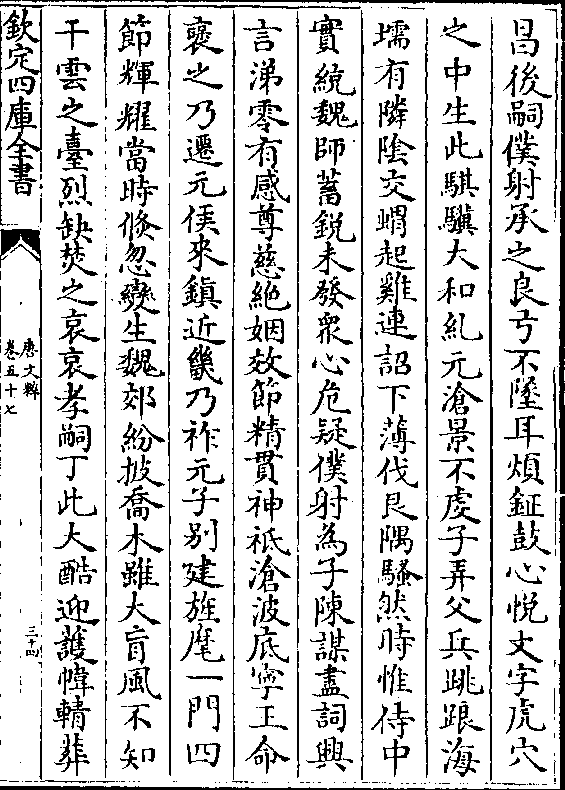 昌後嗣僕射承之良弓不墜耳煩鉦鼓心悦文字虎穴
之中生此騏驥大和紀元滄景不虔子弄父兵跳踉海
壖有隣隂交蝟起雞連詔下薄伐艮隅騷然時惟侍中
實統魏師蓄鋭未發衆心危疑僕射為子陳謀盡詞興
言涕零有感尊慈絶姻效節精貫神祇滄波底寧王命
襃之乃遷元侯來鎮近畿乃祚元子别建旌麾一門四
節輝耀當時倐忽變生魏郊紛披喬木雖大盲風不知
干雲之臺烈缺焚之哀哀孝嗣丁此大酷迎護幃輤葬
欽定四庫全書
唐文粹
卷五十七
三十四